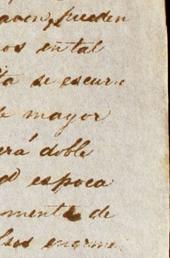 pueden
os en tal
ta se escur
e mayor
erá doble
qe es poca
mente de
enorme